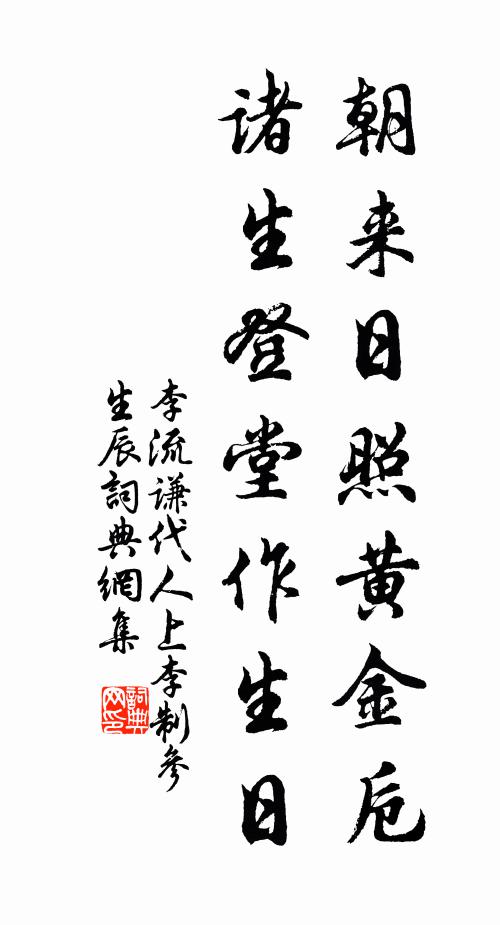 朝来日照黄金卮
诸生登堂作生日
李流谦代人上李制參
生辰詞典網集
詞典网印